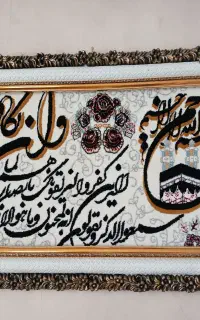 الله الرحمن الرحیم
وان یکا
الذین کفروا لیزلقونک بابصار
هم لما
سمعوا الذکر ویقولون انه لمجنون وما هو الا